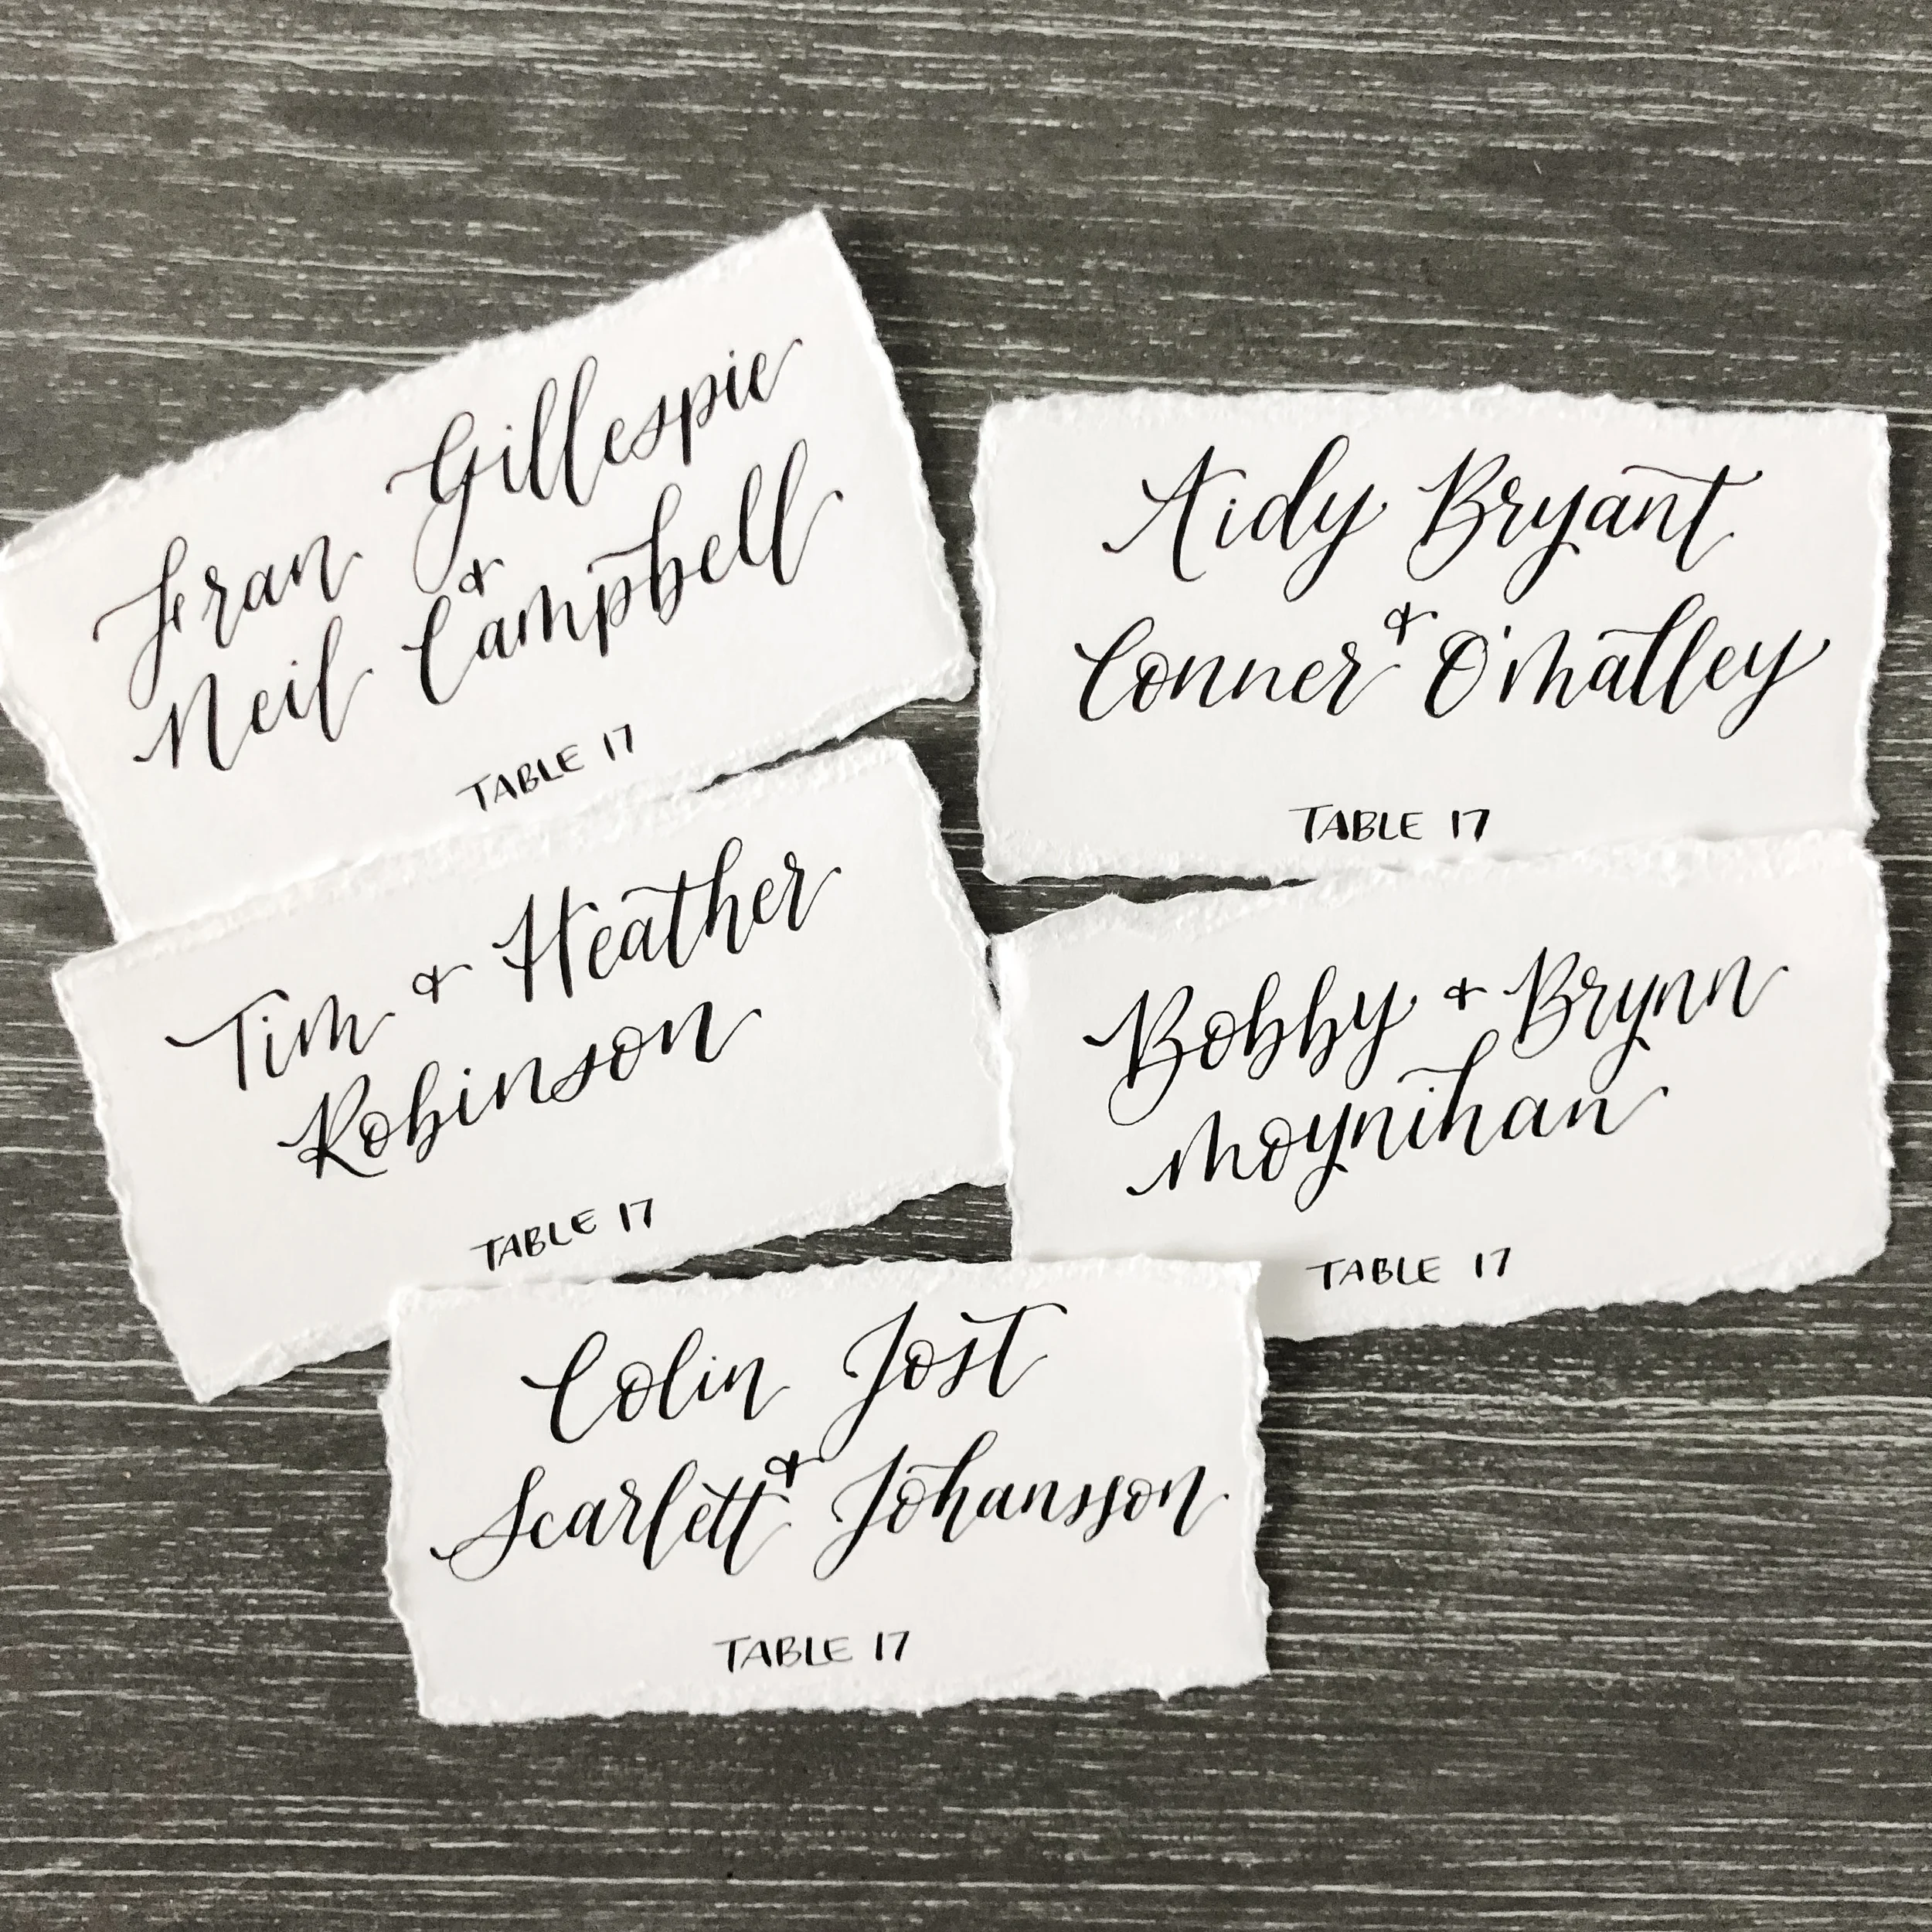 Fran Gillespie
&
Neil Campbell
TABLE 17
Aidy Bryant
&
Conner O'Malley
TABLE 17
Tim & Heather
Robinson
TABLE 17
Bobby & Brynn
Moynihan
TABLE 17
Colin Jost
&
Scarlett Johansson
TABLE 17